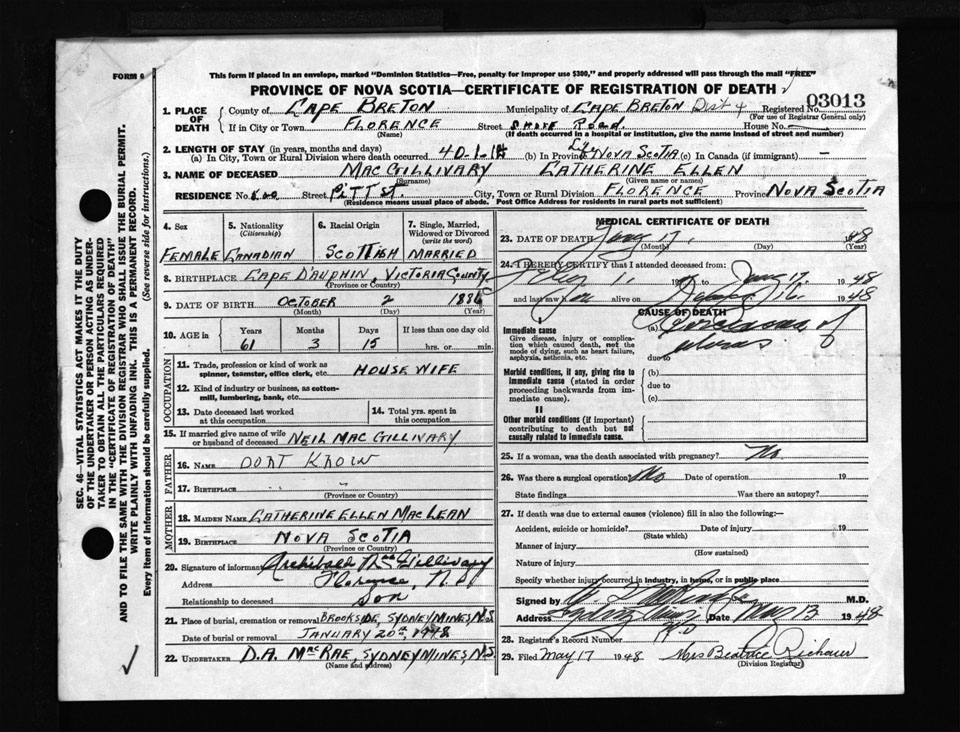 FORM 6
This form if placed in an envelope, marked "Dominion Statistics—Free, penalty for improper use $300," and properly addressed will pass through the mail "FREE"
PROVINCE OF NOVA SCOTIA—CERTIFICATE OF REGISTRATION OF DEATH
1. PLACE OF DEATH
County of CAPE BRETON Municipality of CAPE BRETON Dist 4 Registered No. 03013
(For use of Registrar General only)
If in City or Town FLORENCE Street SHORE ROAD. House No. —
(Name) (If death occurred in a hospital or institution, give the name instead of street and number)
2. LENGTH OF STAY (in years, months and days)
(a) In City, Town or Rural Division where death occurred 40.1.14 (b) In Province Life NOVA SCOTIA (c) In Canada (if immigrant) —
3. NAME OF DECEASED MACGILLIVARY CATHERINE ELLEN
(Surname) (Given name or names)
RESIDENCE No. Street PITT ST. City, Town or Rural Division FLORENCE Province NOVA SCOTIA
(Residence means usual place of abode. Post Office Address for residents in rural parts not sufficient)
4. Sex
5. Nationality (Citizenship)
6. Racial Origin
7. Single, Married, Widowed or Divorced (write the word)
FEMALE CANADIAN SCOTTISH MARRIED
8. BIRTHPLACE CAPE DAUPHIN, VICTORIA COUNTY
(Province or Country)
9. DATE OF BIRTH OCTOBER 2 1886
(Month) (Day) (Year)
10. AGE in Years Months Days If less than one day old
61 3 15 hrs. or min.
OCCUPATION
11. Trade, profession or kind of work as spinner, teamster, office clerk, etc. HOUSE WIFE
12. Kind of industry or business, as cotton-mill, lumbering, bank, etc.
13. Date deceased last worked at this occupation
14. Total yrs. spent in this occupation
15. If married give name of wife or husband of deceased NEIL MAC GILLIVARY
FATHER
16. NAME DONT KNOW
17. BIRTHPLACE
(Province or Country)
MOTHER
18. MAIDEN NAME CATHERINE ELLEN MACLEAN
19. BIRTHPLACE NOVA SCOTIA
(Province or Country)
20. Signature of informant Archibald MacGillivary
Address Florence, N.S
Relationship to deceased Son
21. Place of burial, cremation or removal BROOKSIDE, SYDNEY MINES, N.S
Date of burial or removal JANUARY 20th, 1948
22. UNDERTAKER D.A. McRAE, SYDNEY MINES, N.S.
(Name and address)
MEDICAL CERTIFICATE OF DEATH
23. DATE OF DEATH Jany 17. 1948
(Month) (Day)
24. I HEREBY CERTIFY that I attended deceased from:
1. to Jany 17. 1948
and last saw alive on 16. 1948
CAUSE OF DEATH
Immediate cause
Give disease, injury or complication which caused death, not the mode of dying, such as heart failure, asphyxia, asthenia, etc.
(a) Carcinoma of
due to uterus.
Morbid conditions, if any, giving rise to immediate cause (stated in order proceeding backwards from immediate cause).
(b)
due to
(c)
II
Other morbid conditions (if important) contributing to death but not causally related to immediate cause.
25. If a woman, was the death associated with pregnancy? No.
26. Was there a surgical operation? No Date of operation 19
State findings Was there an autopsy?
27. If death was due to external causes (violence) fill in also the following:—
Accident, suicide or homicide? Date of injury 19
(State which)
Manner of injury
(How sustained)
Nature of injury
Specify whether injury occurred in industry, in home, or in public place
Signed by M.D.
Address Date May 13 1948
28. Registrar's Record Number
29. Filed May 17 1948 Mrs Beatrice
(Division Registrar)
SEC. 46—VITAL STATISTICS ACT MAKES IT THE DUTY
OF THE UNDERTAKER OR PERSON ACTING AS UNDER-
TAKER TO OBTAIN ALL THE PARTICULARS REQUIRED
IN THE "CERTIFICATE OF REGISTRATION OF DEATH"
AND TO FILE THE SAME WITH THE DIVISION REGISTRAR WHO SHALL ISSUE THE BURIAL PERMIT.
WRITE PLAINLY WITH UNFADING INK. THIS IS A PERMANENT RECORD.
Every item of Information should be carefully supplied. (See reverse side for instructions.)